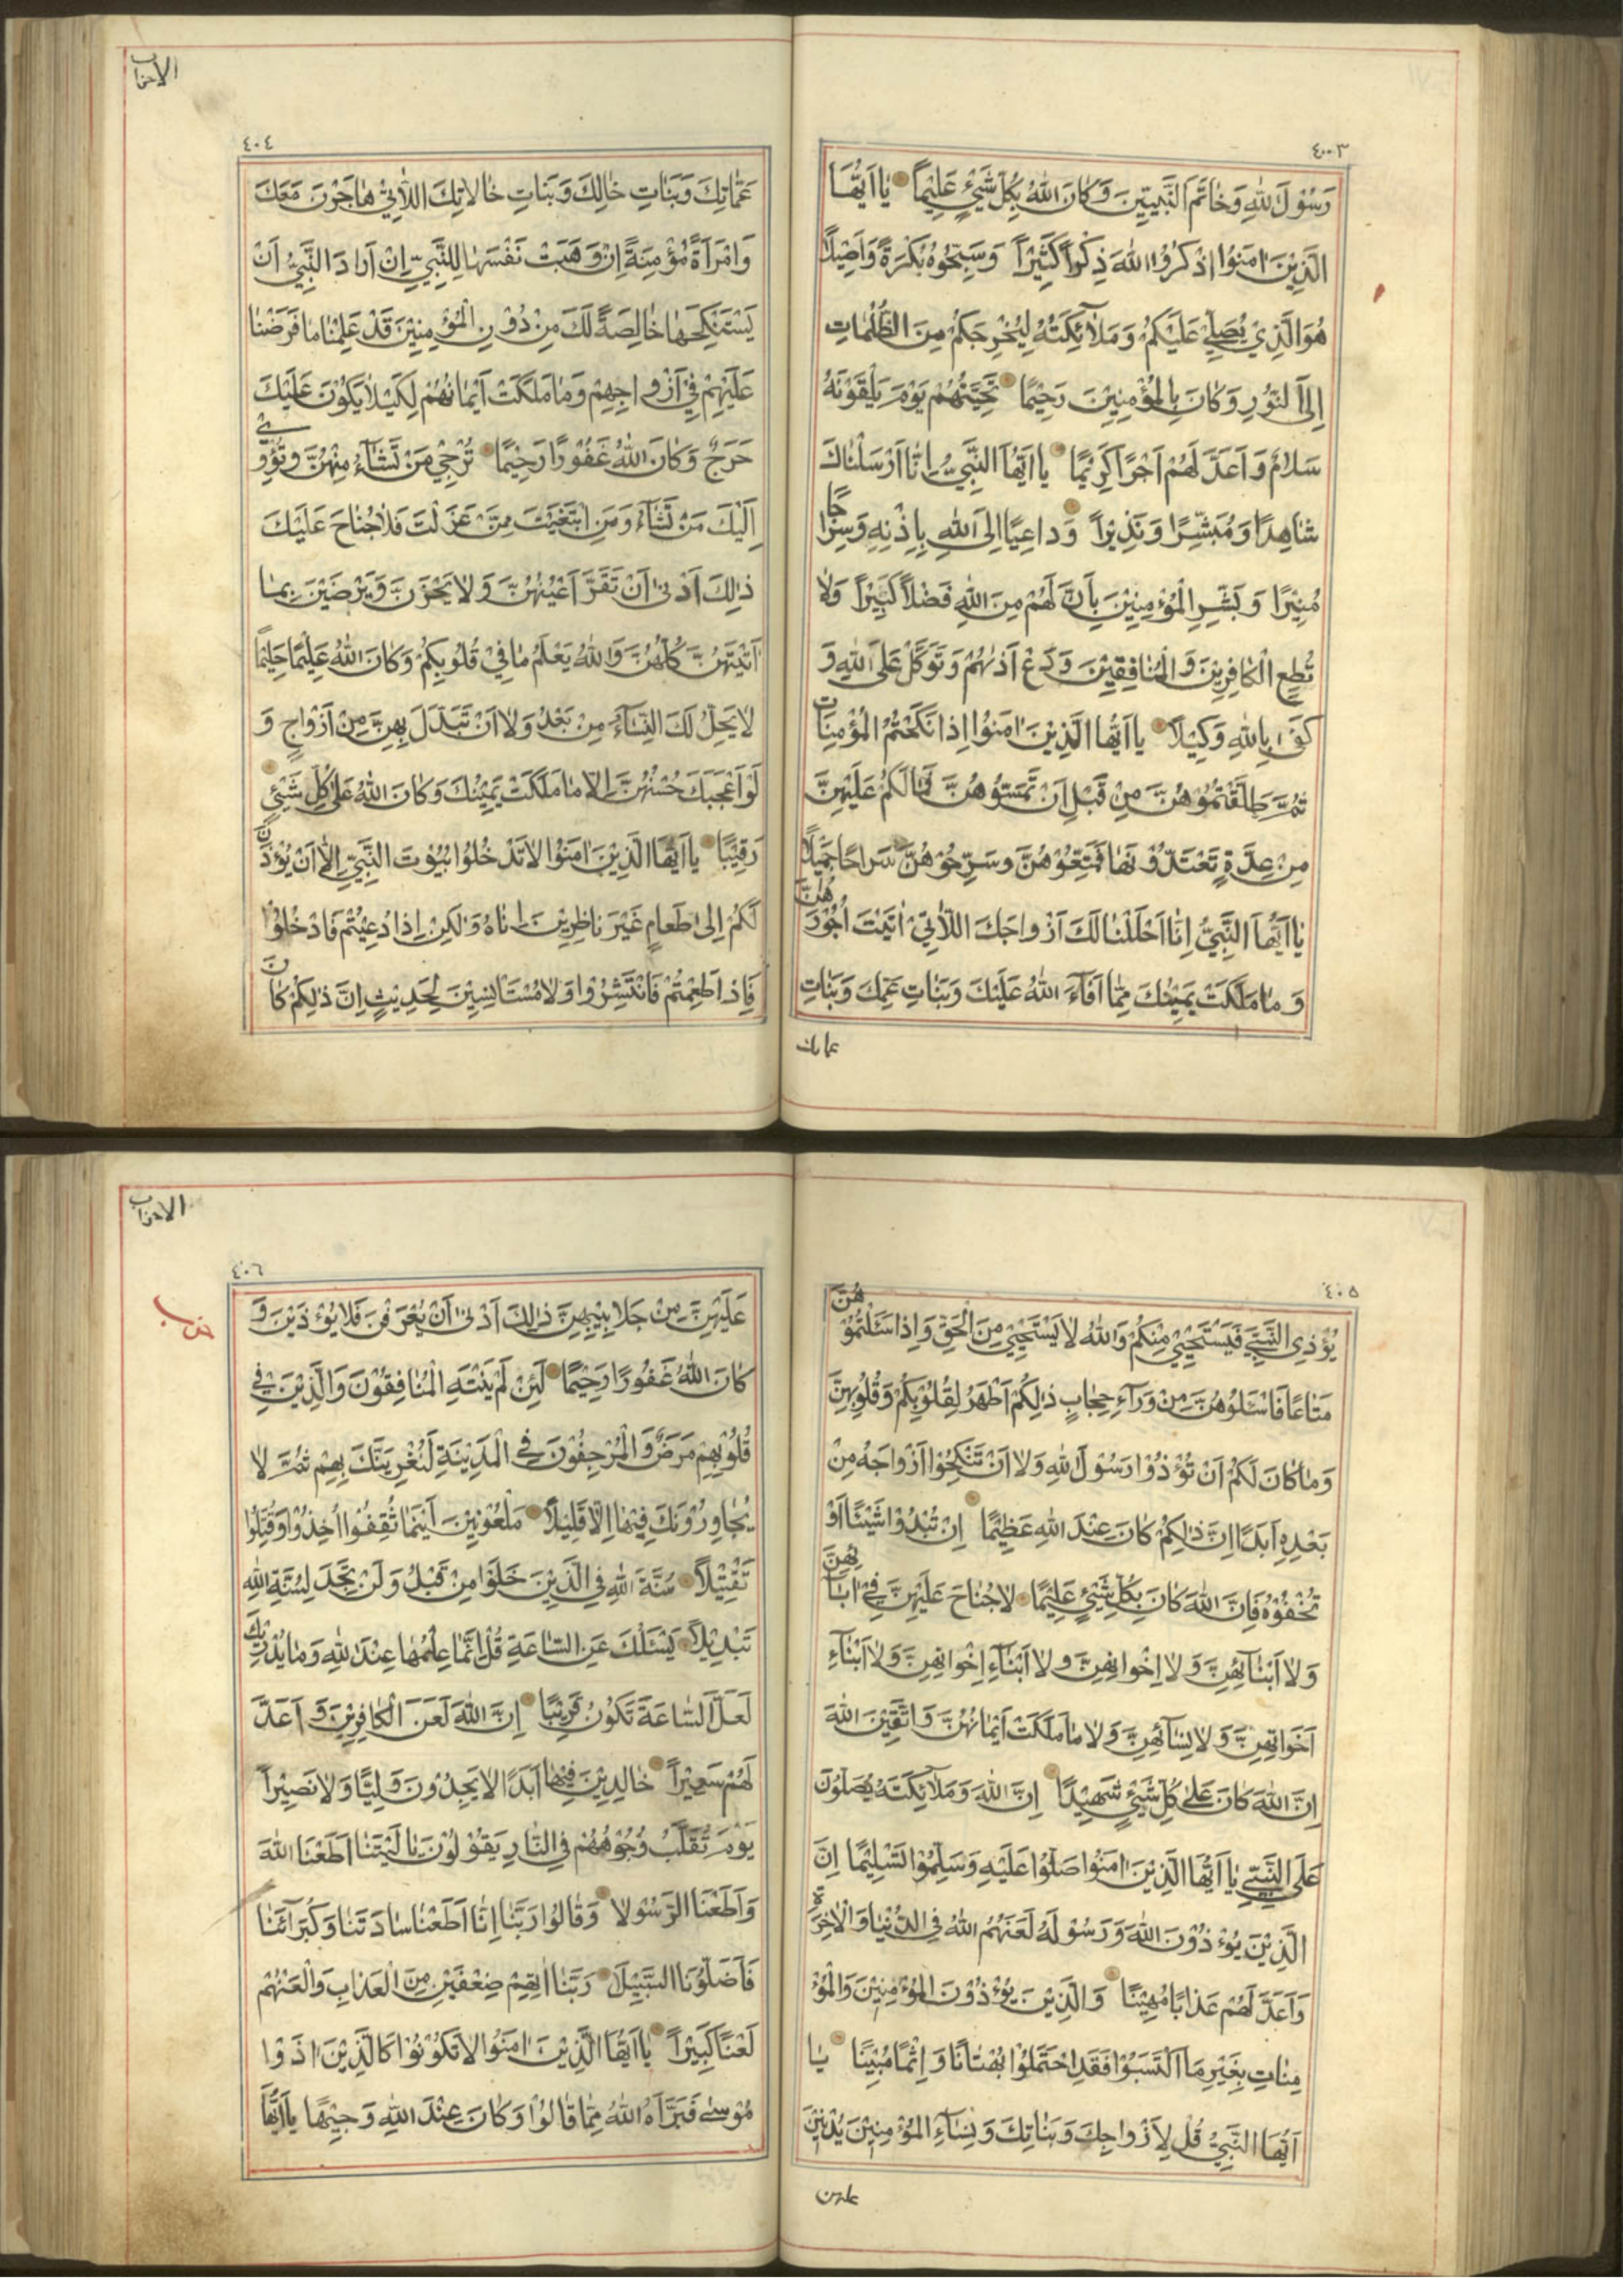 ٤٠٠٣
رَسُوْلَ اللهِ وَخَاتَمَ النَّبِيِّينَ وَكَانَ اللهُ بِكُلِّ شَيْءٍ عَلِيْمًا يَا اَيُّهَا
الَّذِيْنَ اٰمَنُوا اذْكُرُوْا اللهَ ذِكْرًا كَثِيْرًا وَسَبِّحُوهُ بُكْرَةً وَاَصِيْلًا
هُوَ الَّذِيْ يُصَلِّيْ عَلَيْكُمْ وَمَلَآئِكَتُهُ لِيُخْرِجَكُمْ مِنَ الظُّلُمَاتِ
اِلَى النُّوْرِ وَكَانَ بِالْمُؤْمِنِيْنَ رَحِيْمًا تَحِيَّتُهُمْ يَوْمَ يَلْقَوْنَهُ
سَلَامٌ وَاَعَدَّ لَهُمْ اَجْرًا كَرِيْمًا يَا اَيُّهَا النَّبِيُّ اِنَّا اَرْسَلْنَاكَ
شَاهِدًا وَمُبَشِّرًا وَنَذِيْرًا وَدَاعِيًا اِلَى اللهِ بِاِذْنِهِ وَسِرَاجًا
مُنِيْرًا وَبَشِّرِ الْمُؤْمِنِيْنَ بِاَنَّ لَهُمْ مِنَ اللهِ فَضْلًا كَبِيْرًا وَلَا
تُطِعِ الْكَافِرِيْنَ وَالْمُنَافِقِيْنَ وَدَعْ اَذٰىهُمْ وَتَوَكَّلْ عَلَى اللهِ وَ
كَفٰى بِاللهِ وَكِيْلًا يَا اَيُّهَا الَّذِيْنَ اٰمَنُوا اِذَا نَكَحْتُمُ الْمُؤْمِنَاتِ
ثُمَّ طَلَّقْتُمُوْهُنَّ مِنْ قَبْلِ اَنْ تَمَسُّوْهُنَّ فَمَا لَكُمْ عَلَيْهِنَّ
مِنْ عِدَّةٍ تَعْتَدُّوْنَهَا فَمَتِّعُوْهُنَّ وَسَرِّحُوْهُنَّ سَرَاحًا جَمِيْلًا
يَا اَيُّهَا النَّبِيُّ اِنَّا اَحْلَلْنَا لَكَ اَزْوَاجَكَ اللَّاتِيْ اٰتَيْتَ اُجُوْرَهُنَّ
وَمَا مَلَكَتْ يَمِيْنُكَ مِمَّا اَفَآءَ اللهُ عَلَيْكَ وَبَنَاتِ عَمِّكَ وَبَنَاتِ
عماتك
الاحزاب
٤٠٤
عَمَّاتِكَ وَبَنَاتِ خَالِكَ وَبَنَاتِ خَالَاتِكَ اللَّاتِيْ هَاجَرْنَ مَعَكَ
وَامْرَاَةً مُؤْمِنَةً اِنْ وَهَبَتْ نَفْسَهَا لِلنَّبِيِّ اِنْ اَرَادَ النَّبِيُّ اَنْ
يَسْتَنْكِحَهَا خَالِصَةً لَكَ مِنْ دُوْنِ الْمُؤْمِنِيْنَ قَدْ عَلِمْنَا مَا فَرَضْنَا
عَلَيْهِمْ فِيْ اَزْوَاجِهِمْ وَمَا مَلَكَتْ اَيْمَانُهُمْ لِكَيْلَا يَكُوْنَ عَلَيْكَ
حَرَجٌ وَكَانَ اللهُ غَفُوْرًا رَحِيْمًا تُرْجِيْ مَنْ تَشَآءُ مِنْهُنَّ وَتُؤْوِيْ
اِلَيْكَ مَنْ تَشَآءُ وَمَنِ ابْتَغَيْتَ مِمَّنْ عَزَلْتَ فَلَا جُنَاحَ عَلَيْكَ
ذٰلِكَ اَدْنٰى اَنْ تَقَرَّ اَعْيُنُهُنَّ وَلَا يَحْزَنَّ وَيَرْضَيْنَ بِمَا
اٰتَيْتَهُنَّ كُلُّهُنَّ وَاللهُ يَعْلَمُ مَا فِيْ قُلُوْبِكُمْ وَكَانَ اللهُ عَلِيْمًا حَلِيْمًا
لَا يَحِلُّ لَكَ النِّسَآءُ مِنْ بَعْدُ وَلَا اَنْ تَبَدَّلَ بِهِنَّ مِنْ اَزْوَاجٍ وَ
لَوْ اَعْجَبَكَ حُسْنُهُنَّ اِلَّا مَا مَلَكَتْ يَمِيْنُكَ وَكَانَ اللهُ عَلٰى كُلِّ شَيْءٍ
رَقِيْبًا يَا اَيُّهَا الَّذِيْنَ اٰمَنُوا لَا تَدْخُلُوا بُيُوْتَ النَّبِيِّ اِلَّا اَنْ يُؤْذَنَ
لَكُمْ اِلٰى طَعَامٍ غَيْرَ نَاظِرِيْنَ اِنَاهُ وَلٰكِنْ اِذَا دُعِيْتُمْ فَادْخُلُوْا
فَاِذَا طَعِمْتُمْ فَانْتَشِرُوْا وَلَا مُسْتَاْنِسِيْنَ لِحَدِيْثٍ اِنَّ ذٰلِكُمْ كَانَ
٤٠٥
يُؤْذِى النَّبِيَّ فَيَسْتَحْيِيْ مِنْكُمْ وَاللهُ لَا يَسْتَحْيِيْ مِنَ الْحَقِّ وَاِذَا سَئَلْتُمُوْهُنَّ
مَتَاعًا فَاسْئَلُوْهُنَّ مِنْ وَرَآءِ حِجَابٍ ذٰلِكُمْ اَطْهَرُ لِقُلُوْبِكُمْ وَقُلُوْبِهِنَّ
وَمَا كَانَ لَكُمْ اَنْ تُؤْذُوْا رَسُوْلَ اللهِ وَلَا اَنْ تَنْكِحُوْا اَزْوَاجَهُ مِنْ
بَعْدِهِ اَبَدًا اِنَّ ذٰلِكُمْ كَانَ عِنْدَ اللهِ عَظِيْمًا اِنْ تُبْدُوْا شَيْئًا اَوْ
تُخْفُوْهُ فَاِنَّ اللهَ كَانَ بِكُلِّ شَيْءٍ عَلِيْمًا لَا جُنَاحَ عَلَيْهِنَّ فِيْ اٰبَآئِهِنَّ
وَلَا اَبْنَآئِهِنَّ وَلَا اِخْوَانِهِنَّ وَلَا اَبْنَآءِ اِخْوَانِهِنَّ وَلَا اَبْنَآءِ
اَخَوَاتِهِنَّ وَلَا نِسَآئِهِنَّ وَلَا مَا مَلَكَتْ اَيْمَانُهُنَّ وَاتَّقِيْنَ اللهَ
اِنَّ اللهَ كَانَ عَلٰى كُلِّ شَيْءٍ شَهِيْدًا اِنَّ اللهَ وَمَلَآئِكَتَهُ يُصَلُّوْنَ
عَلَى النَّبِيِّ يَا اَيُّهَا الَّذِيْنَ اٰمَنُوْا صَلُّوْا عَلَيْهِ وَسَلِّمُوْا تَسْلِيْمًا اِنَّ
الَّذِيْنَ يُؤْذُوْنَ اللهَ وَرَسُوْلَهُ لَعَنَهُمُ اللهُ فِى الدُّنْيَا وَالْاٰخِرَةِ
وَاَعَدَّ لَهُمْ عَذَابًا مُهِيْنًا وَالَّذِيْنَ يُؤْذُوْنَ الْمُؤْمِنِيْنَ وَالْمُؤْ
مِنَاتِ بِغَيْرِ مَا اكْتَسَبُوْا فَقَدِ احْتَمَلُوْا بُهْتَانًا وَاِثْمًا مُبِيْنًا يَا
اَيُّهَا النَّبِيُّ قُلْ لِاَزْوَاجِكَ وَبَنَاتِكَ وَنِسَآءِ الْمُؤْمِنِيْنَ يُدْنِيْنَ
عليهن
الاحزاب
٤٠٦
حزب
عَلَيْهِنَّ مِنْ جَلَابِيْبِهِنَّ ذٰلِكَ اَدْنٰى اَنْ يُعْرَفْنَ فَلَا يُؤْذَيْنَ وَ
كَانَ اللهُ غَفُوْرًا رَحِيْمًا لَئِنْ لَمْ يَنْتَهِ الْمُنَافِقُوْنَ وَالَّذِيْنَ فِيْ
قُلُوْبِهِمْ مَرَضٌ وَالْمُرْجِفُوْنَ فِى الْمَدِيْنَةِ لَنُغْرِيَنَّكَ بِهِمْ ثُمَّ لَا
يُجَاوِرُوْنَكَ فِيْهَا اِلَّا قَلِيْلًا مَلْعُوْنِيْنَ اَيْنَمَا ثُقِفُوْا اُخِذُوْا وَقُتِّلُوْا
تَقْتِيْلًا سُنَّةَ اللهِ فِى الَّذِيْنَ خَلَوْا مِنْ قَبْلُ وَلَنْ تَجِدَ لِسُنَّةِ اللهِ
تَبْدِيْلًا يَسْئَلُكَ عَنِ السَّاعَةِ قُلْ اِنَّمَا عِلْمُهَا عِنْدَ اللهِ وَمَا يُدْرِيْكَ
لَعَلَّ السَّاعَةَ تَكُوْنُ قَرِيْبًا اِنَّ اللهَ لَعَنَ الْكَافِرِيْنَ وَاَعَدَّ
لَهُمْ سَعِيْرًا خَالِدِيْنَ فِيْهَا اَبَدًا لَا يَجِدُوْنَ وَلِيًّا وَلَا نَصِيْرًا
يَوْمَ تُقَلَّبُ وُجُوْهُهُمْ فِى النَّارِ يَقُوْلُوْنَ يَا لَيْتَنَا اَطَعْنَا اللهَ
وَاَطَعْنَا الرَّسُوْلَا وَقَالُوْا رَبَّنَا اِنَّا اَطَعْنَا سَادَتَنَا وَكُبَرَآئَنَا
فَاَضَلُّوْنَا السَّبِيْلَا رَبَّنَا اٰتِهِمْ ضِعْفَيْنِ مِنَ الْعَذَابِ وَالْعَنْهُمْ
لَعْنًا كَبِيْرًا يَا اَيُّهَا الَّذِيْنَ اٰمَنُوْا لَا تَكُوْنُوْا كَالَّذِيْنَ اٰذَوْا
مُوْسٰى فَبَرَّاَهُ اللهُ مِمَّا قَالُوْا وَكَانَ عِنْدَ اللهِ وَجِيْهًا يَا اَيُّهَا